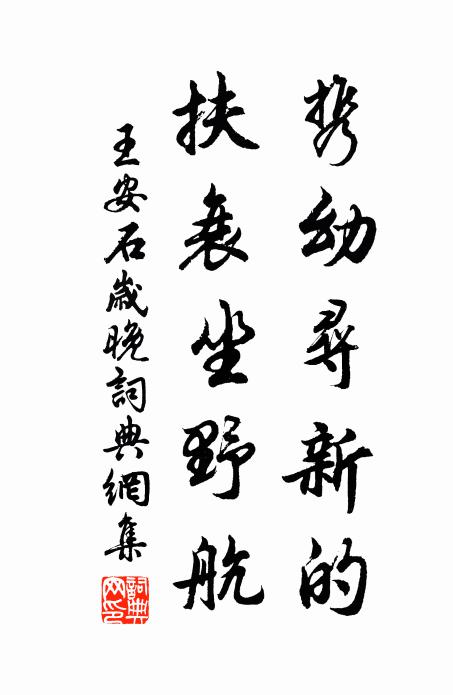 携幼尋新的
扶衰坐野航
王安石歲晚詞典網集
詞典網印